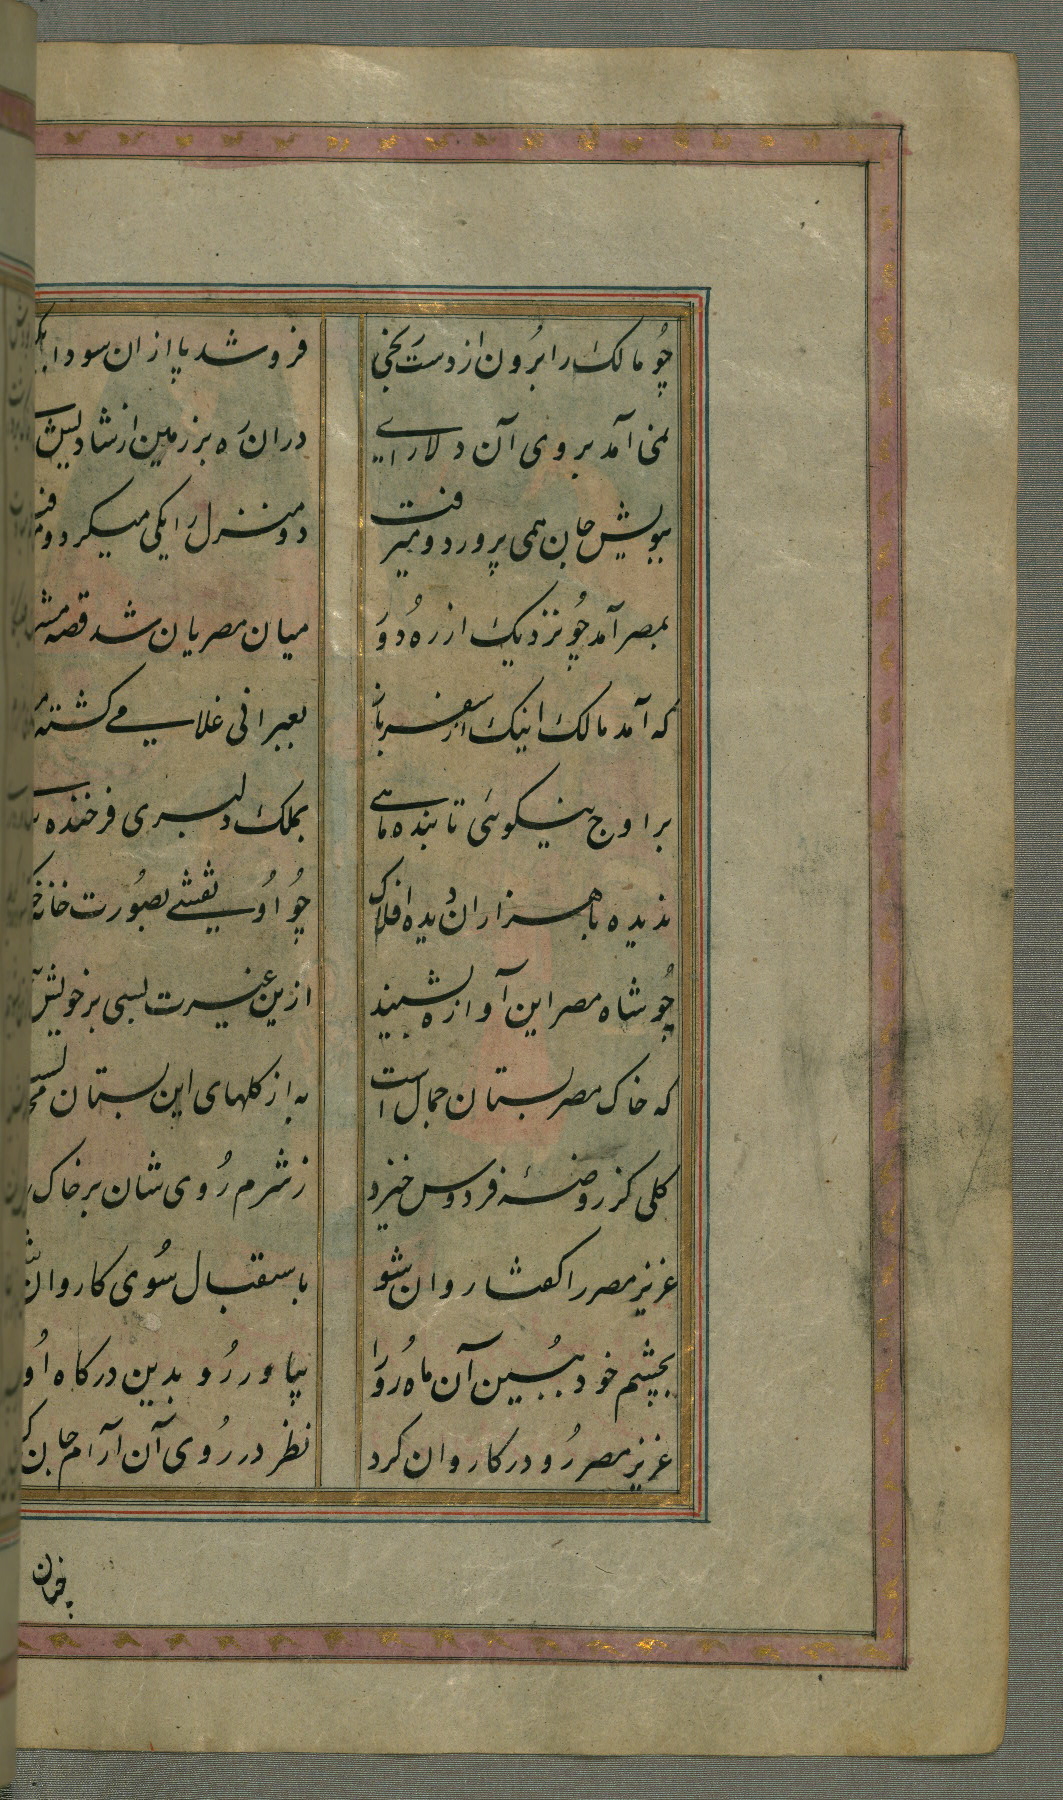 چو مالک را برون از دست رنجی فروشد پا ازان سودا
نمی آمد بروی آن دلارای دران ره بر زمین از شادیش
ببویش جان همی پرورد و میرفت دو منزل را یکی میکرد و
بمصر آمد چو نزدیک از ره دور میان مصریان شد قصه
که آمد مالک اینک از سفر باز بعبرانی غلامی کشته
بر اوج نیکوئی تابنده ماهی بملک دلبری فرخنده
ندیده با هزاران دیده افلاک چو او نقشی بصورت خانه
چو شاه مصر این آوازه بشنید ازین غیرت بسی بر خویش
که خاک مصر بستان جمال است به از کلهای این بستان
کلی کز روضهٔ فردوس خیزد ز شرم روی شان بر خاک
عزیز مصر را کفتا روان شو باستقبال سوی کاروان
بچشم خود ببین آن ماه رو را بیاور رو بدین درکاه او
عزیز مصر رو در کاروان کرد نظر در روی آن آرام جان
چنان